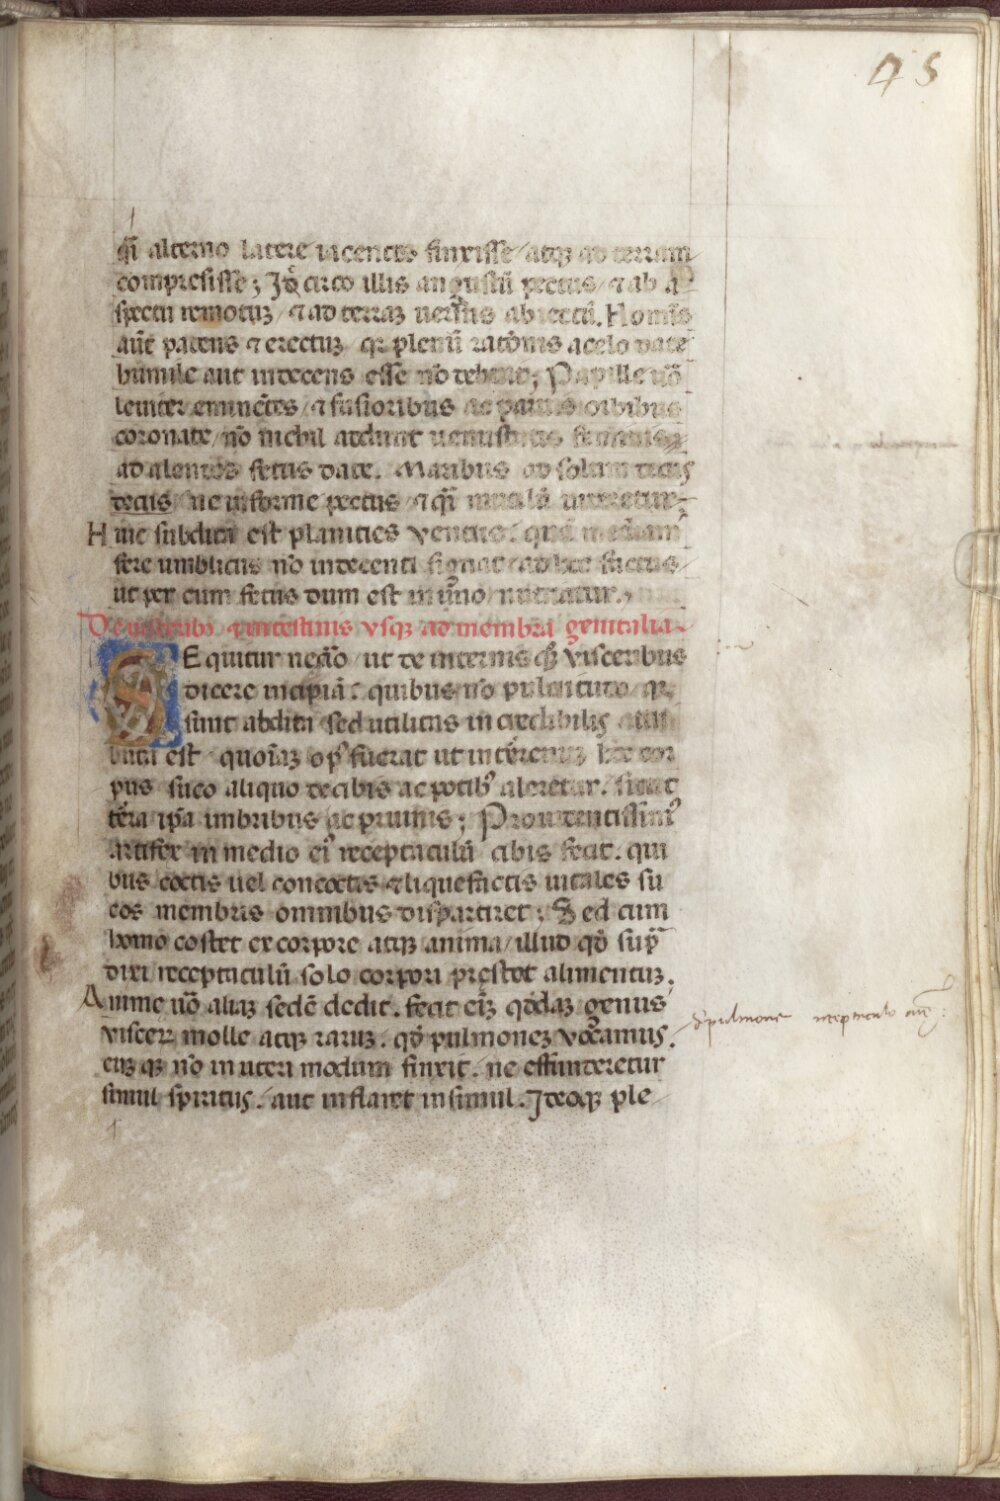 45
qm̄ alterno latere iacentes finxisse / atqꝫ ad terram
compressisse; Idcirco illis angustū pectus / ⁊ ab a
spectu remotuꝫ / ⁊ ad terraꝫ uersus abiectū. Homīs
aūt patens ⁊ erectuꝫ qꝛ plenū ratōnis a celo date
humile aut indecens esse nō debuit; Papille uō
leuiter eminētes / ⁊ fusioribus ac paruis orbibus
coronate / nō nichil addunt uenustatis feminis
ad alendos fetus date. Maribus ad solum decus
decus / ne informe pectus / ⁊ qī mutilū uideretur;
Huic subdita est planities ventris: quā mediam
fere umblicus nō indecenti signat / ad hoc factus
ut per eum fetus dum est in ut̄o nutriatur.
De uisceribꝫ ⁊ intestinis vsqꝫ ad membra genitalia.
SEquitur neciō ut de internis qꝫ visceribus
dicere incipiā: quibus nō pulcritudo qꝛ
sunt abdita sed utilitas incredibilis atti
buta est / quoniaꝫ opꝰ fuerat ut intērenuꝫ hoc cor
pus suco aliquo de cibis ac potibꝰ aleretur. sicut
tēra ipā imbribus ac pruinis; Prouidentissimꝰ
artifex in medio eiꝰ receptaculū cibis fecit. qui
bus coctis uel concoctis ⁊ liquefactis uitales su
cos membris omnibus dispartiret; Sed cum
homo costet ex corpore atqꝫ anima / illud qd̄ supra
dixi receptaculū solo corpori prestot alimentuꝫ.
Anime uō aliaꝫ sedē dedit. fecit eīꝫ qd̄daꝫ genus
viscerꝫ molle atqꝫ raruꝫ. qd̄ pulmoneꝫ vocamus.
eiꝫ qꝫ nō in utri modum finxit. ne effunderetur
simul spiritus. aut inflaret insimul. Ideoqꝫ ple
pulmone receptaculo